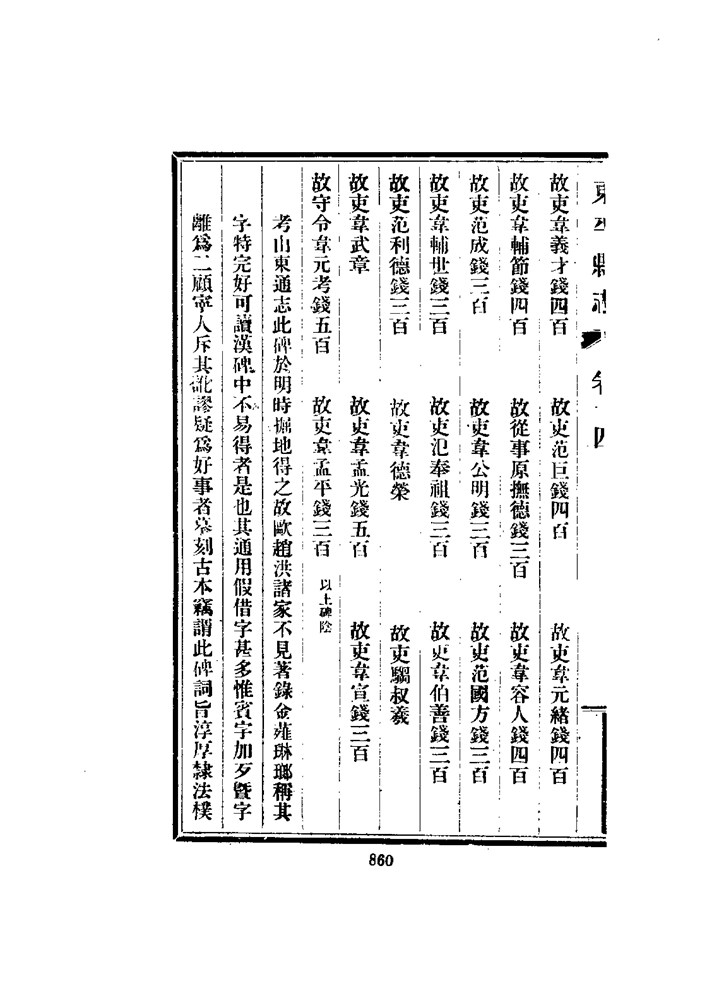 東平縣志 卷十四
故吏韋義才錢四百 故吏范巨錢四百 故吏韋元緒錢四百
故吏韋輔節錢四百 故從事原撫德錢三百 故吏韋容人錢四百
故吏范成錢三百 故吏韋公明錢三百 故吏范國方錢三百
故吏韋輔世錢三百 故吏氾奉祖錢三百 故吏韋伯善錢三百
故吏范利德錢三百 故吏韋德榮 故吏騶叔義
故吏韋武章 故吏韋孟光錢五百 故吏韋宣錢三百
故守令韋元考錢五百 故吏韋孟平錢三百 以上碑陰
考山東通志此碑於明時掘地得之故歐趙洪諸家不見著錄金薤琳瑯稱其
字特完好可讀漢碑中不易得者是也其通用假借字甚多惟賓字加歹曁字
離爲二顧寧人斥其訛謬疑爲好事者摹刻古本竊謂此碑詞旨淳厚隸法樸
860